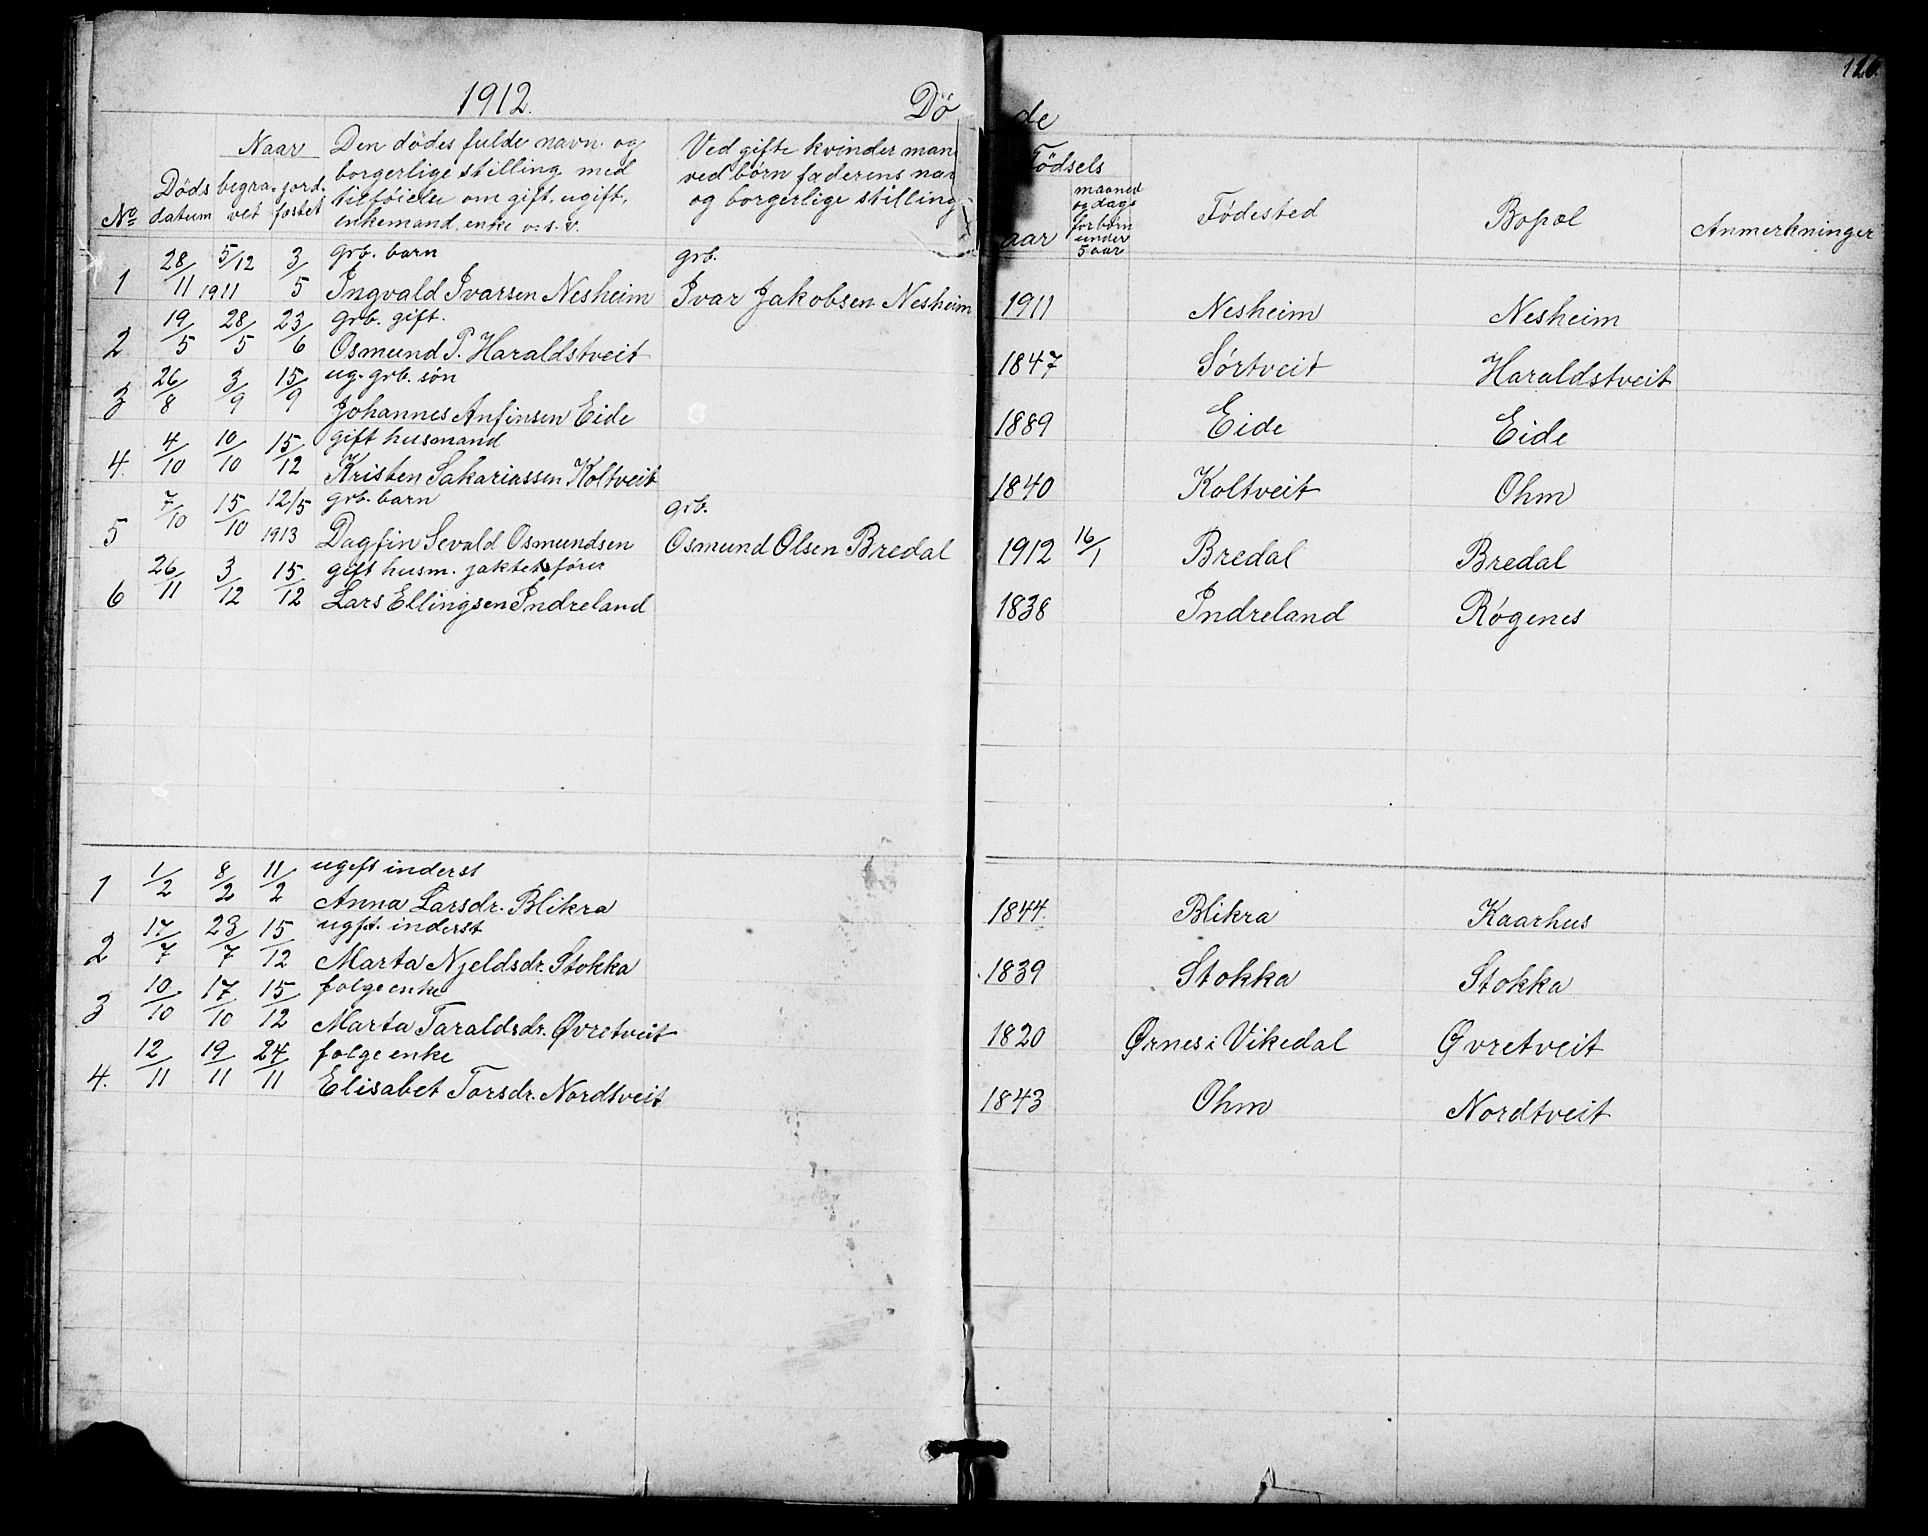 1912.
Dö de
126.
No
Döds datum
Naar
begra- vet
jord- festet
Den dödes fulde navn og
borgerlige stilling med
tilföielse om gift, ugift,
enkemand, enke o.s.v.
Ved gifte kvinder man
ved børn faderens nav
og borgerlige stilling
Födsels
aar
maaned
og dag
for børn
under
5 aar
Födested
Bopæl
Anmerkninger
grb. barn grb.
1 28/11 5/12 1911 3/5 Ingvald Ivarsen Nesheim Ivar Jakobsen Nesheim 1911 Nesheim Nesheim
grb. gift.
2 19/5 28/5 23/6 Osmund P. Haraldstveit 1847 Sørtveit Haraldstveit
ug. grb. søn
3 26/8 3/9 15/9 Johannes Anfinsen Eide 1889 Eide Eide
gift husmand
4. 4/10 10/10 15/12 Kristen Sakariassen Koltveit 1840 Koltveit Ohm
grb. barn grb.
5 7/10 15/10 12/5 1913 Dagfin Sevald Osmundsen Osmund Olsen Bredal 1912 16/1 Bredal Bredal
gift husm. jaktefører
6 26/11 3/12 15/12 Lars Ellingsen Indreland 1838 Indreland Røgenes
ugift inderst
1 1/2 8/2 11/2 Anna Larsdr. Blikra 1844. Blikra Kaarhus
ugft. inderst
2 17/7 23/7 15/12 Marta Njeldsdr. Stokka 1839 Stokka Stokka
folgeenke
3 10/10 17/10 15/12 Marta Taraldsdr. Øvretveit 1820 Ørnes i Vikedal Øvretveit
folge enke
4. 12/11 19/11 24/11 Elisabet Torsdr. Nordtveit 1843 Ohm Nordtveit